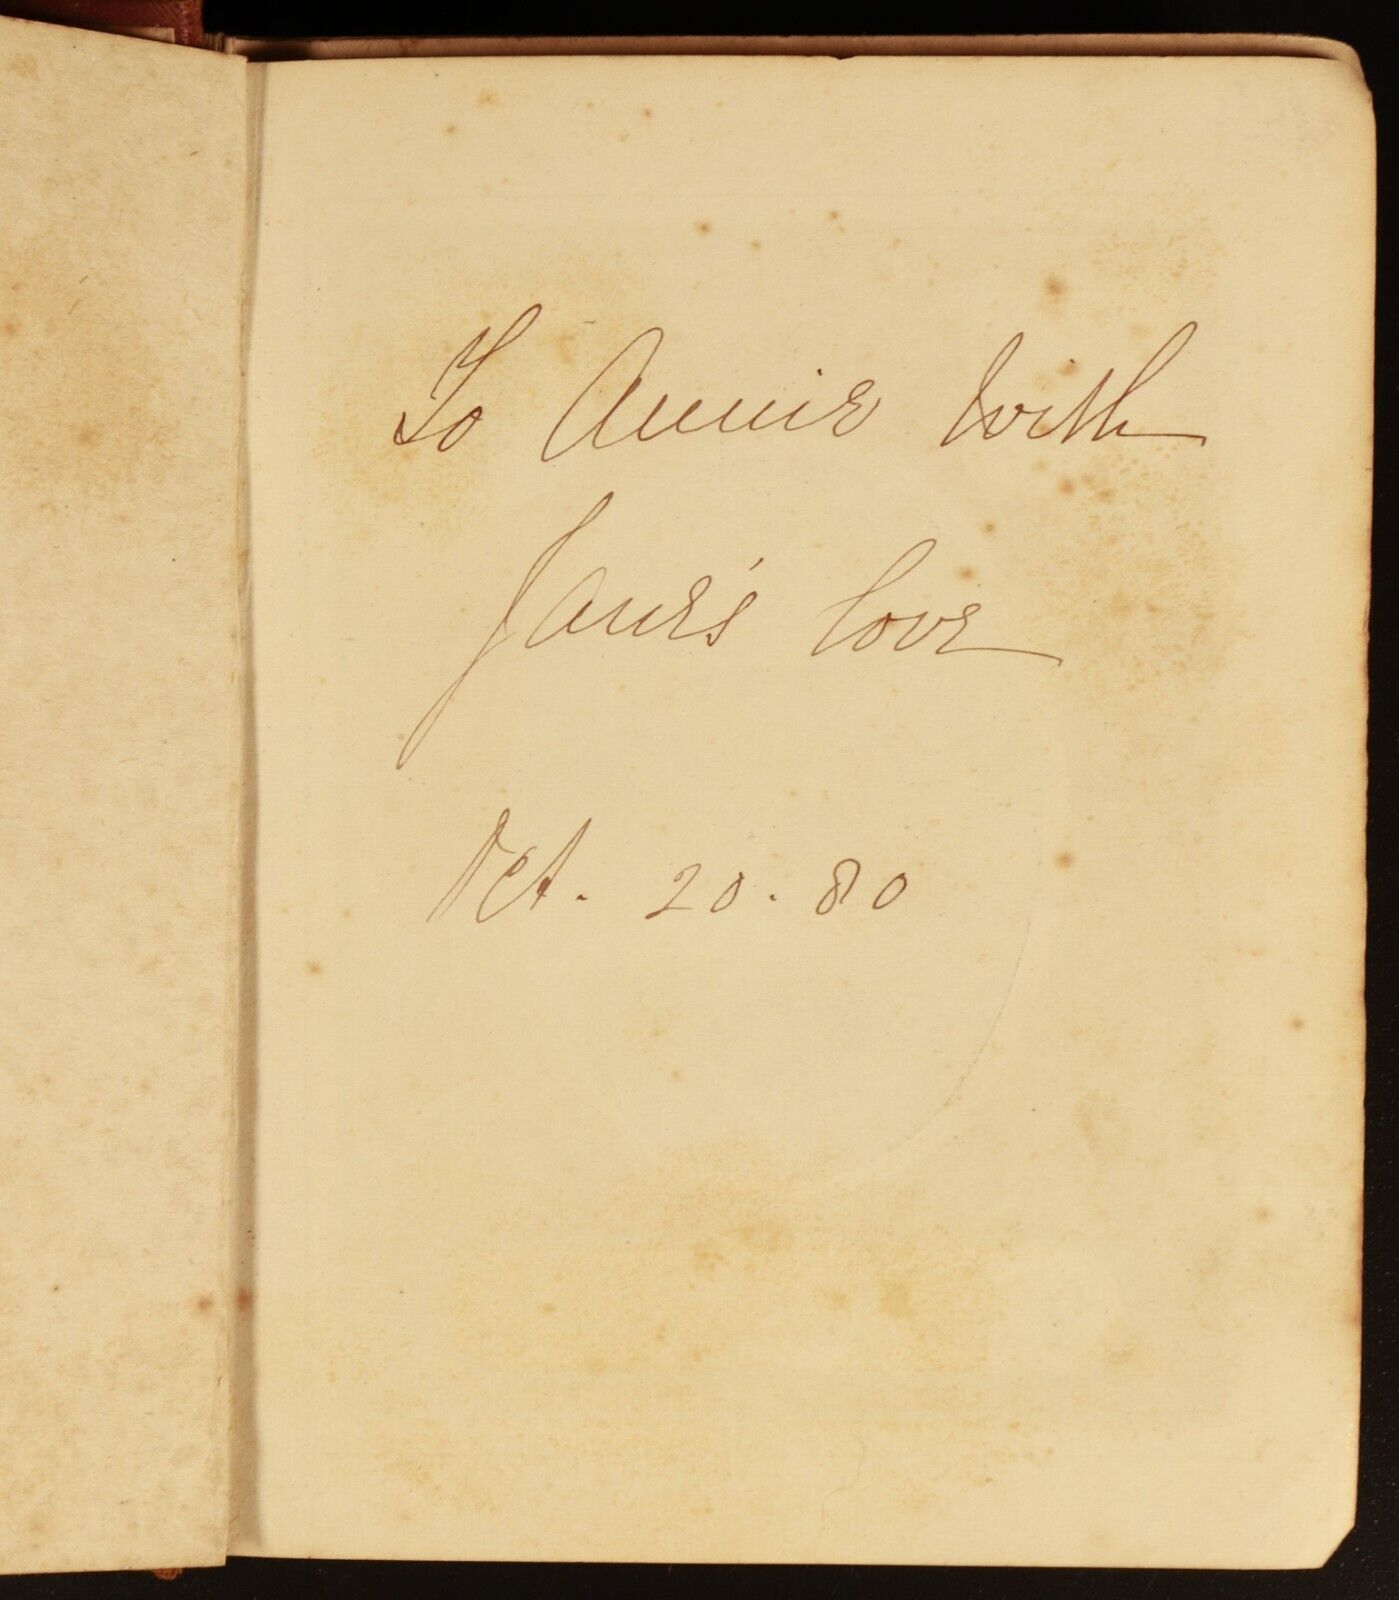 To Annie with
Jane's love
Oct. 20. 80